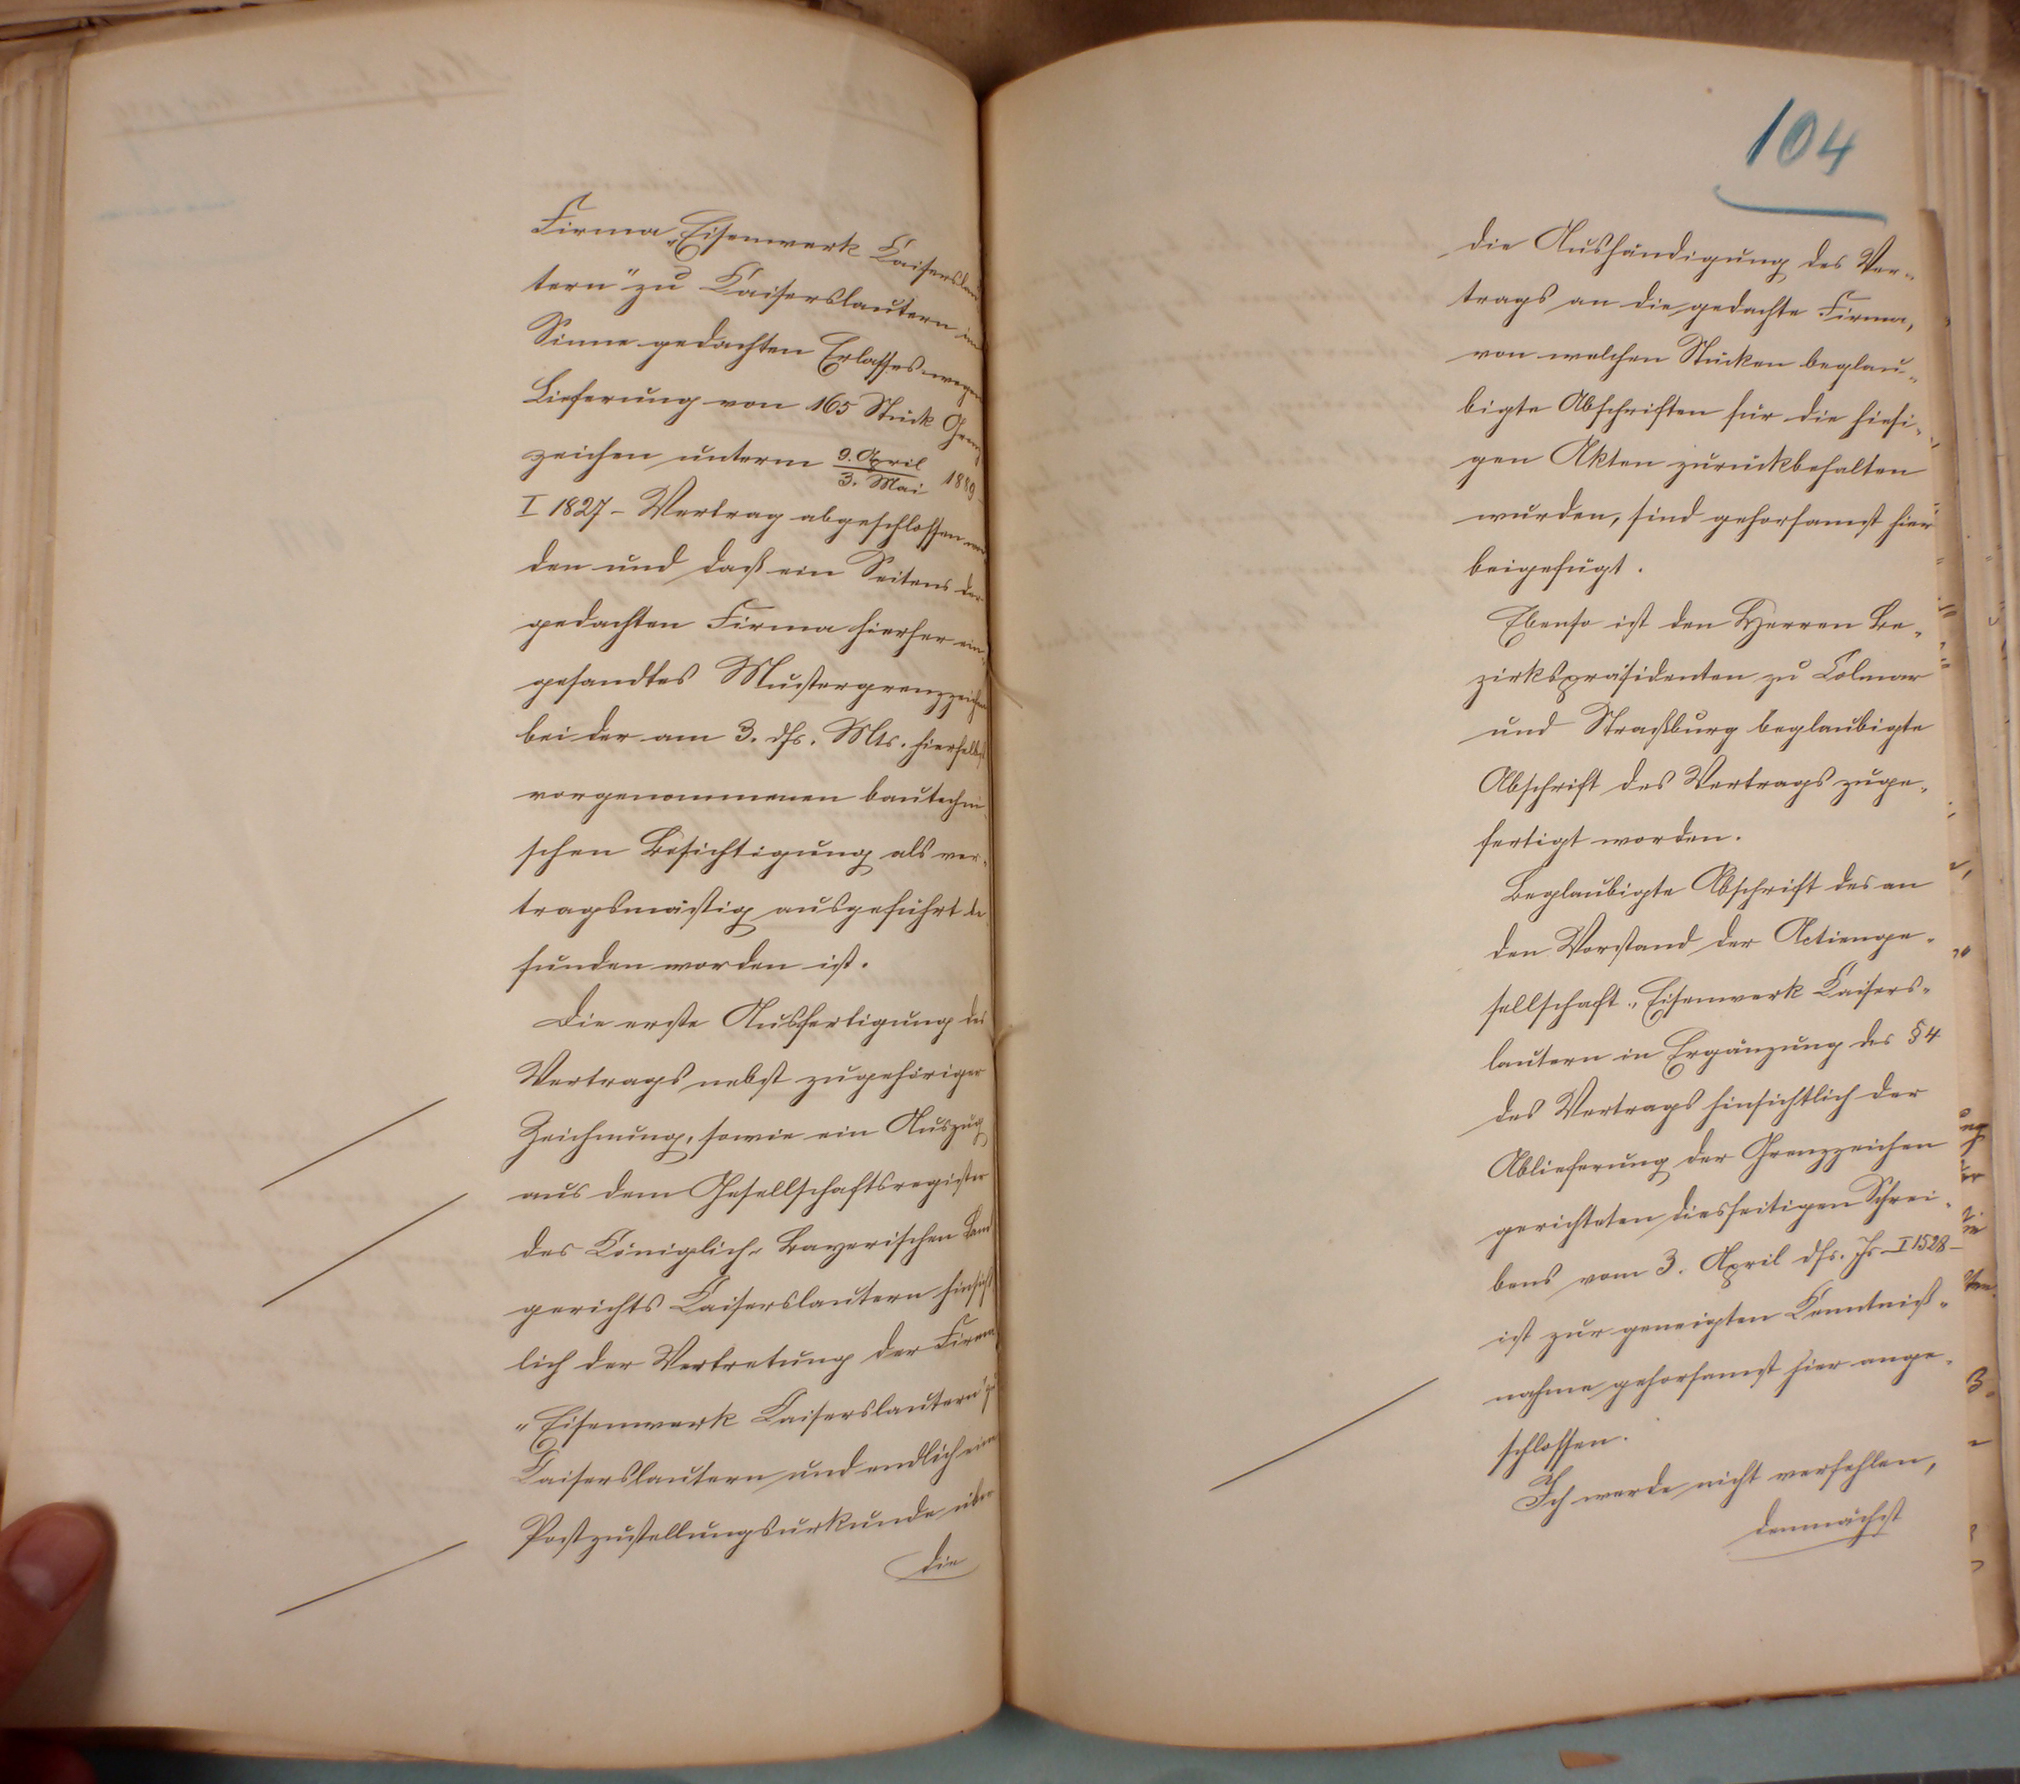 Firma „Eisenwerk Kaiserslau
tern" zu Kaiserslautern im
Sinne gedachten Erlasses wegen
Lieferung von 165 Stück Grenz
zeichen unterm 9. April / 3. Mai 1889 –
I 1827 – Vertrag abgeschlossen wor
den und daß ein Seitens der
gedachten Firma hierher ein-
gesandtes Mustergrenzzeichen
bei der am 3. dss. Mts. hierselbst
vorgenommenen bautechni
schen Besichtigung als ver-
tragsmäßig ausgeführt be
funden worden ist.
Die erste Ausfertigung des
Vertrags nebst zugehöriger
Zeichnung, sowie ein Auszug
aus dem Gesellschaftsregister
des Königlich-Bayerischen Land
gerichts Kaiserslautern hinsicht
lich der Vertretung der Firma
„Eisenwerk Kaiserslautern" zu
Kaiserslautern und endlich eine
Postzustellungsurkunde über
die
104
die Aushändigung des Ver-
trags an die gedachte Firma,
von welchen Stücken beglau-
bigte Abschriften für die hiesi-
gen Akten zurückbehalten
wurden, sind gehorsamst hier
beigefügt.
Ebenso ist den Herren Be-
zirkspräsidenten zu Colmar
und Straßburg beglaubigte
Abschrift des Vertrags zuge-
fertigt worden.
Beglaubigte Abschrift des an
den Vorstand der Actienge-
sellschaft „Eisenwerk Kaisers-
lautern in Ergänzung des § 4
des Vertrags hinsichtlich der
Ablieferung der Grenzzeichen
gerichteten diesseitigen Schrei-
bens vom 3. April dss. Js – I 1528 –
ist zur geneigten Kenntniß-
nahme gehorsamst hier ange-
schlossen.
Ich werde nicht verfehlen,
demnächst